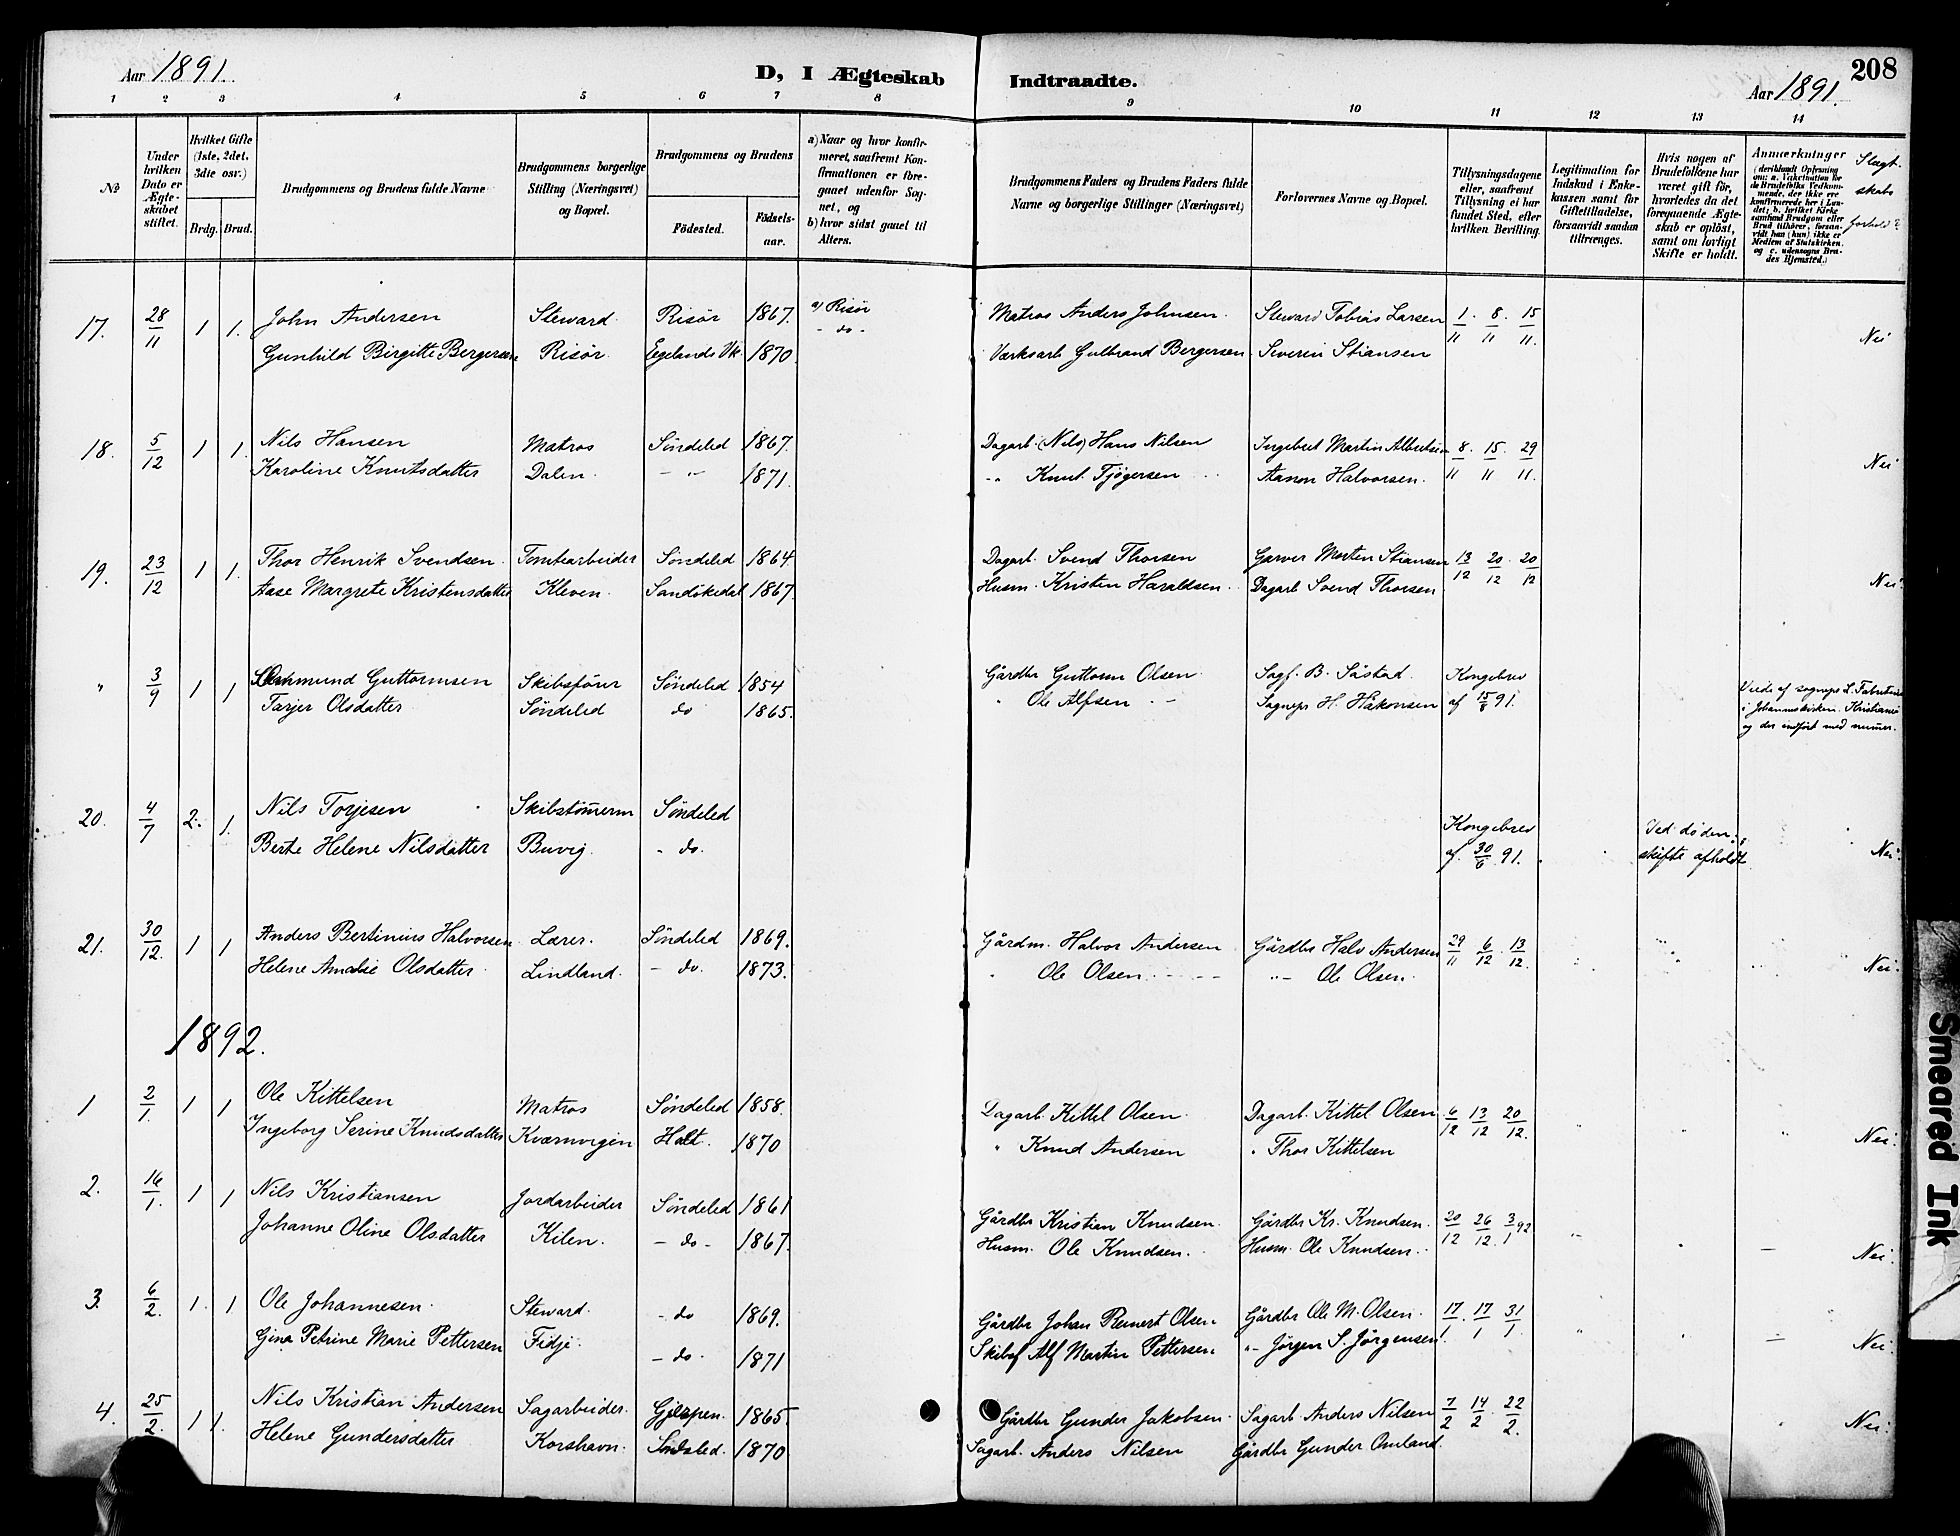 208
Aar 1891.
D, I Ægteskab Indtraadte.
Aar 1891.
1 2 3 4 5 6 7 8 9 10 11 12 13 14
No
Under hvilken Dato er Ægteskabet stiftet.
Hvilket Gifte (1ste, 2det, 3die osv.)
Brdg. Brud.
Brudgommens og Brudens fulde Navne
Brudgommens borgerlige Stilling (Næringsvei) og Bopæl.
Brudgommens og Brudens
Födested. Födsels-aar.
a) Naar og hvor konfirmeret, saafremt Konfirmationen er foregaaet udenfor Sognet, og
b) hvor sidst gaaet til Alters.
Brudgommens Faders og Brudens Faders fulde Navne og borgerlige Stillinger (Næringsvei)
Forlovernes Navne og Bopæl.
Tillysningsdagene eller, saafremt Tillysning ei har fundet Sted, efter hvilken Bevilling.
Legitimation for Indskud i Enkekassen samt for Giftetilladelse, forsaavidt saadan tiltrænges.
Hvis nogen af Brudefolkene har været gift før, hvorledes da det foregaaende Ægteskab er oplöst, samt om lovligt Skifte er holdt.
Anmærkninger (deriblandt Oplysning om: a. Vakcination for de Brudefolks Vedkommende, der ikke ere konfirmerede her i Landet; b. hvilket Kirkesamfund Brudgom eller Brud tilhører, forsaavidt han (hun) ikke er Medlem af Statskirken, og c. udensogns Brudes Hjemsted.)
Slægtskabsforhold?
17. 28/11 1 1. John Andersen Steward Risør 1867. a) Risør Matros Anders Johnsen. Steward Tobias Larsen 1/11 8/11 15/11. Nei
Gunhild Birgitte Bergersen Risør. Egelands Vk. 1870. - do - Værksarb Gulbrand Bergersen Severin Stiansen
18. 5/12 1 1. Nils Hansen Matros Søndeled 1867. Dagarb. (Nils) Hans Nilsen Ingebret Martin Albretsen 8/11 15/11 29/11. Nei
Karoline Knutsdatter Dalen. - " 1871. - " Knut Tjøgersen Aanon Halvorsen.
19. 23/12 1 1. Thor Henrik Svendsen. Tomtearbeider Søndeled 1864. Dagarb. Svend Thorsen Garver Morten Stiansen 13/12 20/12 20/12 Nei.
Aase Margrete Kristensdatter Kleven. Sandökedal 1867. Husm. Kristen Haraldsen. Dagarb Svend Thorsen
" 3/9 1 1 Guttormsen Skibsfører Søndeled 1854 Gårdbr Guttorm Olsen. Sagf. B. Såstad. Kongebrev
Tarjer Olsdatter Søndeled do 1865. " Ole Alfsen - Sognepr H. Håkonsen af 15/8 91.
Viede af sognepr
i Johanneskirken. Kristiania
og der indført med nummer.
20. 4/7 2. 1. Nils Torjesen Skibstömerm Søndeled Kongebrev Ved døden.
Berte Helene Nilsdatter Buvig. - do. af 30/6 91. skifte afholdt. Nei.
21. 30/12. 1 1 Anders Bertinius Halvorsen Lærer. Søndeled 1869. Gårdm. Halvor Andersen Gårdbr Halv Andersen 29/11 6/12 13/12. Nei.
Helene Amalie Olsdatter Lindland. - do. 1873. " Ole Olsen. - " - Ole Olsen.
1892.
1 2/1. 1 1 Ole Kittelsen Matros Søndeled 1858. Dagarb. Kittel Olsen. Dagarb. Kittel Olsen 6/12 13/12 20/12. Nei.
Ingeborg Serine Knudsdatter Kværnvigen Holt. 1870 " Knud Andersen " Thor Kittelsen
2. 16/1. 1 1 Nils Kristiansen Jordarbeider Søndeled 1861 Gårdbr Kristian Knudsen. Gårdbr Kr. Knudsen. 20/12 26/12. 3/1 92 Nei.
Johanne Oline Olsdatter Kilen. - do - 1867. Husm. Ole Knudsen. Husm. Ole Knudsen.
3. 6/2. 1. 1 Ole Johannesen. Steward. - do 1869. Gårdbr Johan Reinert Olsen Gårdbr Ole M. Olsen. 17/1. 17/1 31/1. Nei.
Gina Petrine Marie Pettersen Fidje. - do. 1871 Skibsf Alf Martin Pettersen " - Jørgen S. Jørgensen
4. 25/2. 1 1. Nils Kristian Andersen Sagarbeider. Gjerpen. 1865. Gårdbr Gunder Jakobsen. Sagarb. Anders Nilsen 7/2 14/2 22/2. Nei.
Helene Gundersdatter Korshavn. Søndeled. 1870 Sagarb. Anders Nilsen Gårdbr Gunder Omland.
Smeared Ink